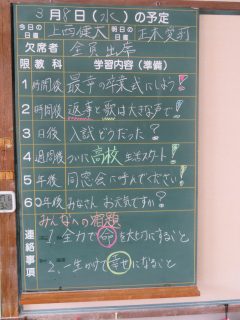 3月8日（水）の予定
今日の日直 上西健大 明日の日直 正木
欠席者 全員出席
限 教科 学習内容（準備）
1時間後 最幸の卒業式にしよう！
2時間後 返事と歌は大きな声で！
3日後 入試どうだった？
4週間後 ついに高校生活スタート！
5年後 同窓会に呼んでください！
60年後 みなさん お元気ですか？
連絡事項
みんなへの宿題
1. 全力で命を大切にすること
2. 一生かけて幸せになること